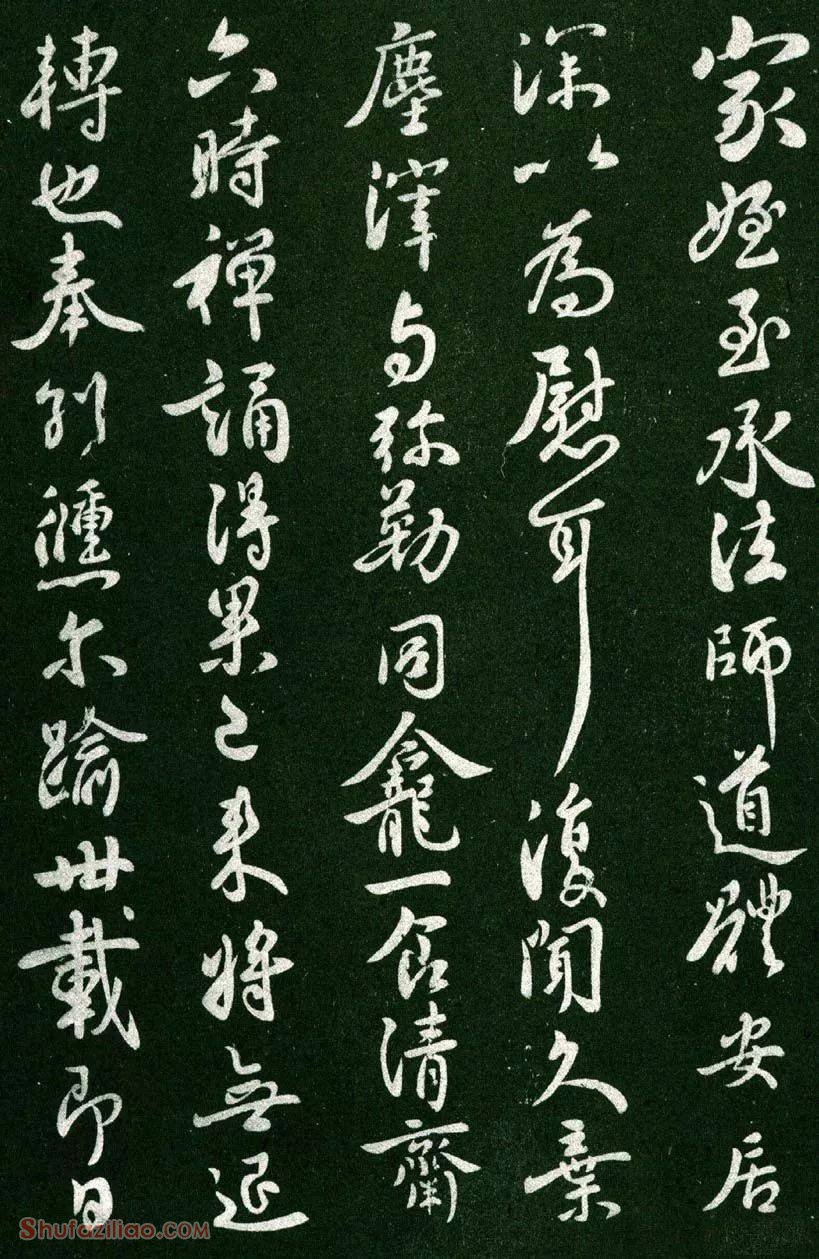 家姪至承法師道體安居
深以為慰耳復聞久棄
塵滓与弥勒同龕一食清齋
六時禪誦得果已来將無退
轉也奉别倐尔踰卅載即日
Shufaziliao.com